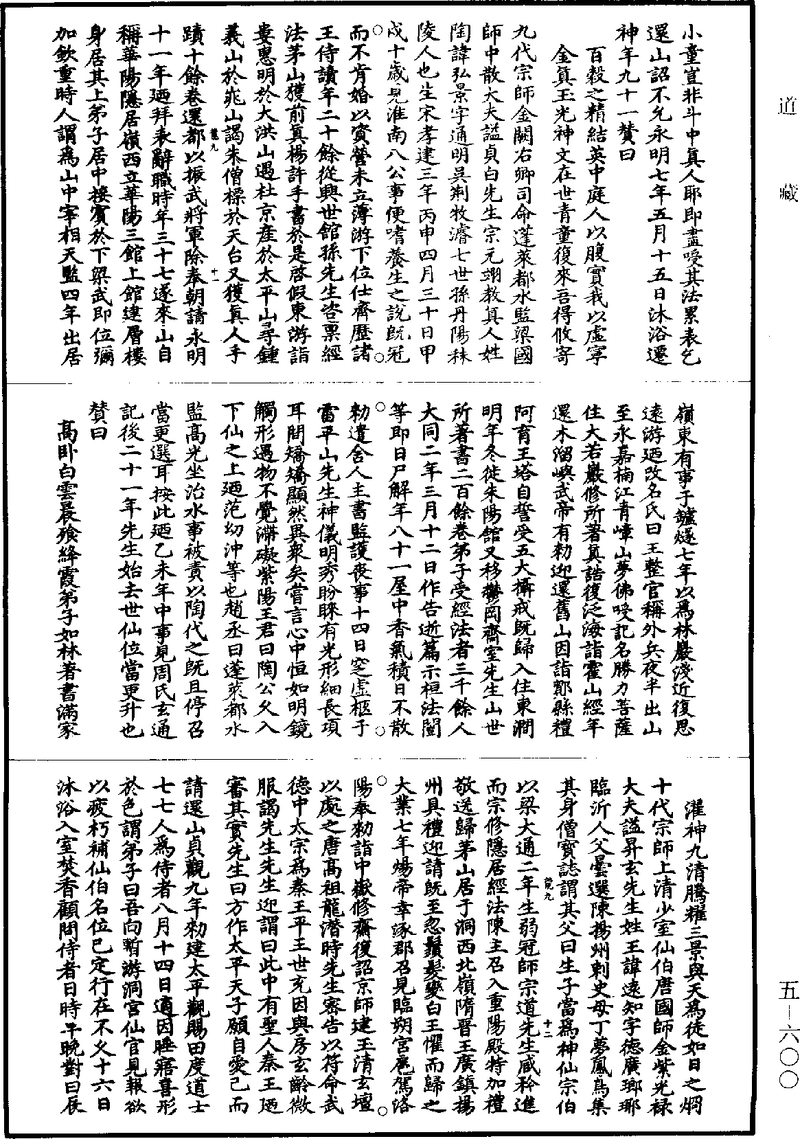 道藏
小童豈非斗中真人耶即盡受其法累表乞
還山詔不允永明七年五月十五日沐浴遷
神年九十一贊曰
百穀之精結英中庭人以腹實我以虛寧
金真玉光神文在世青童復來吾得攸寄
九代宗師金闕右卿司命蓬萊都水監梁國
師中散大夫謚貞白先生宗元翊教真人姓
陶諱弘景字通明吳荆牧濬七世孫丹陽秣
陵人也生宋孝建三年丙申四月三十日甲
戌十歲見淮南八公事便嗜養生之說既冠
而不肯婚以資營未立薄游下位仕齊歷諸
王侍讀年二十餘從興世館孫先生咨稟經
法茅山獲前真楊許手書於是啓假東游詣
婁惠明於大洪山遇杜京產於太平山尋鍾
義山於㟃山謁朱僧標於天台又獲真人手
蹟十餘卷還都以振武將軍除奉朝請永明
十一年廼拜表辭職時年三十七遂來山自
稱華陽隱居嶺西立華陽三館上館建層樓
身居其上弟子居中接賓於下梁武即位彌
加欽重時人謂爲山中宰相天監四年出居
嶺東有事于鑪燧七年以爲林嚴淺近復思
遠游廼改名氏曰王整官稱外兵夜半出山
至永嘉楠江青嶂山夢佛受記名勝力菩薩
住大若巖修所著真誥復泛海詣霍山經年
還木溜嶼武帝有勑迎還舊山因詣鄮縣禮
阿育王塔自誓受五大攝戒既歸入住東澗
明年冬徙朱陽館又移鬱岡齋室先生山世
所著書二百餘卷弟子受經法者三千餘人
大同二年三月十二日作告逝篇示桓法闓
等即日尸解年八十一屋中香氣積日不散
勑遣舍人主書監護喪事十四日窆虛柩于
雷平山先生神儀明秀盼睞有光形細長項
耳間矯矯顯然異衆矣嘗言心中恒如明鏡
觸形遇物不覺滯礙紫陽王君曰陶公久入
下仙之上廼范幼沖等也趙丞曰蓬萊都水
監高光坐治水事被責以陶代之既且停召
當更選耳按此廼乙未年中事見周氏玄通
記後二十一年先生始去世仙位當更升也
贊曰
高卧白雲晨飧絳霞弟子如林著書滿家
濯神九清騰耀三景與天爲徒如日之烱
十代宗師上清少室仙伯唐國師金紫光祿
大夫謚昇玄先生姓王諱遠知字德廣瑯琊
臨沂人父曇選陳揚州刺史母丁夢鳳鳥集
其身僧寶誌謂其父曰生子當爲神仙宗伯
以梁大通二年生弱冠師宗道先生臧矜進
而宗修隱居經法陳主召入重陽殿特加禮
敬送歸茅山居于洞西北嶺隋晉王廣鎮揚
州具禮迎請既至忽鬚髮變白王懼而歸之
大業七年煬帝幸涿郡召見臨朔宮扈駕洛
陽奉勑詣中嶽修齋復詔京師建玉清玄壇
以處之唐高祖龍潛時先生密告以符命武
德中太宗爲秦王平王世充因與房玄齡微
服謁先生先生迎謂曰此中有聖人秦王廼
審其實先生曰方作太平天子願自愛已而
請還山貞觀九年勑建太平觀賜田度道士
七七人爲侍者八月十四日適因睡寤喜形
於色謂弟子曰吾向暫游洞宮仙官見報欲
以疲朽補仙伯名位已定行在不久十六日
沐浴入室焚香顧問侍者日時早晚對曰辰
五—六〇〇